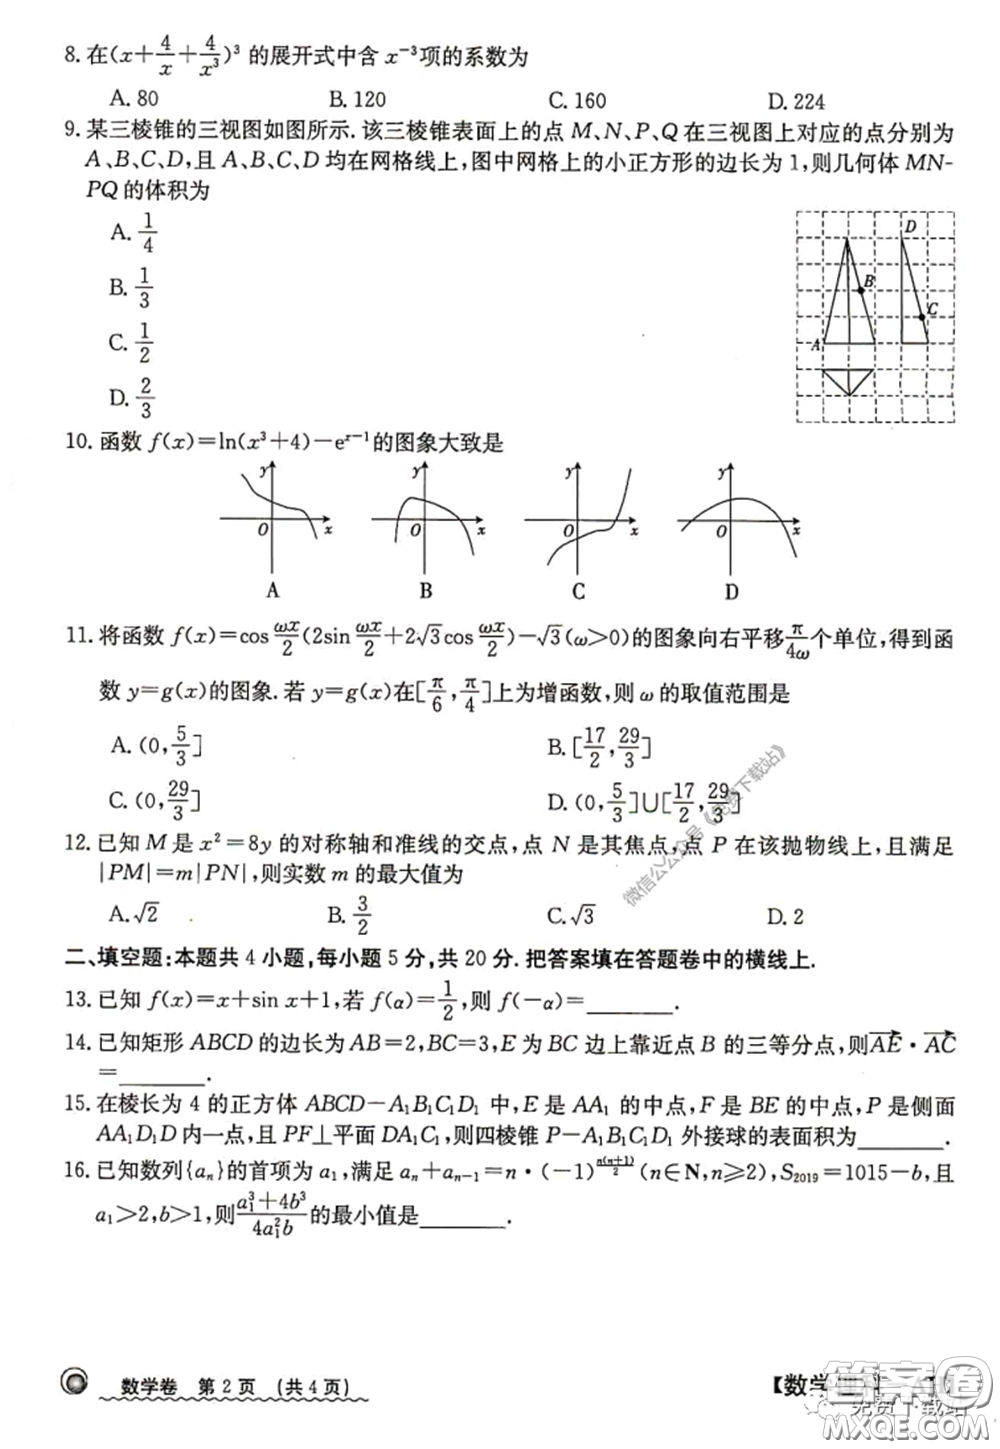 8. 在(x+4/x+4/x³)³ 的展开式中含 x⁻³项的系数为
A. 80 B. 120 C. 160 D. 224
9. 某三棱锥的三视图如图所示. 该三棱锥表面上的点 M、N、P、Q 在三视图上对应的点分别为
A、B、C、D, 且 A、B、C、D 均在网格线上, 图中网格上的小正方形的边长为 1, 则几何体 MN-
PQ 的体积为
A. 1/4
B. 1/3
C. 1/2
D. 2/3
D
B
C
A
10. 函数 f(x)=ln(x³+4)-eˣ⁻¹的图象大致是
y y y y
O x O x O x O x
A B C D
11. 将函数 f(x)=cos ωx/2(2sin ωx/2+2√3cos ωx/2)-√3(ω>0)的图象向右平移 π/4ω 个单位, 得到函
数 y=g(x)的图象. 若 y=g(x)在[π/6, π/4]上为增函数, 则 ω 的取值范围是
A. (0, 5/3] B. [17/2, 29/3]
C. (0, 29/3] D. (0, 5/3]∪[17/2, 29/3]
12. 已知 M 是 x²=8y 的对称轴和准线的交点, 点 N 是其焦点, 点 P 在该抛物线上, 且满足
|PM|=m|PN|, 则实数 m 的最大值为
A. √2 B. 3/2 C. √3 D. 2
二、填空题: 本题共 4 小题, 每小题 5 分, 共 20 分. 把答案填在答题卷中的横线上.
13. 已知 f(x)=x+sin x+1, 若 f(α)=1/2, 则 f(-α)=______.
14. 已知矩形 ABCD 的边长为 AB=2, BC=3, E 为 BC 边上靠近点 B 的三等分点, 则AE·AC
=______.
15. 在棱长为 4 的正方体 ABCD-A₁B₁C₁D₁ 中, E 是 AA₁ 的中点, F 是 BE 的中点, P 是侧面
AA₁D₁D 内一点, 且 PF⊥平面 DA₁C₁, 则四棱锥 P-A₁B₁C₁D₁ 外接球的表面积为______.
16. 已知数列{aₙ}的首项为 a₁, 满足 aₙ+aₙ₋₁=n·(-1)^(n(n+1)/2)(n∈N, n≥2), S₂₀₁₉=1015-b, 且
a₁>2, b>1, 则(a₁³+4b³)/(4a₁²b)的最小值是______.
数学卷 第 2 页 (共 4 页)
【数学
答案卷
MXQE.COM